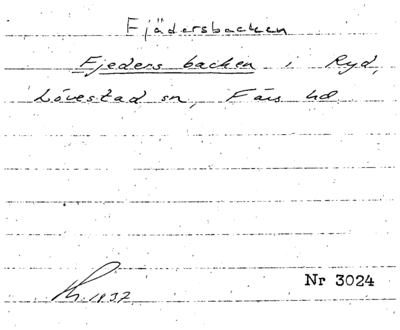 Fjädersbacken
Fjeders backen i Ryd,
Lövestad sn, Färs hd
1937
Nr 3024